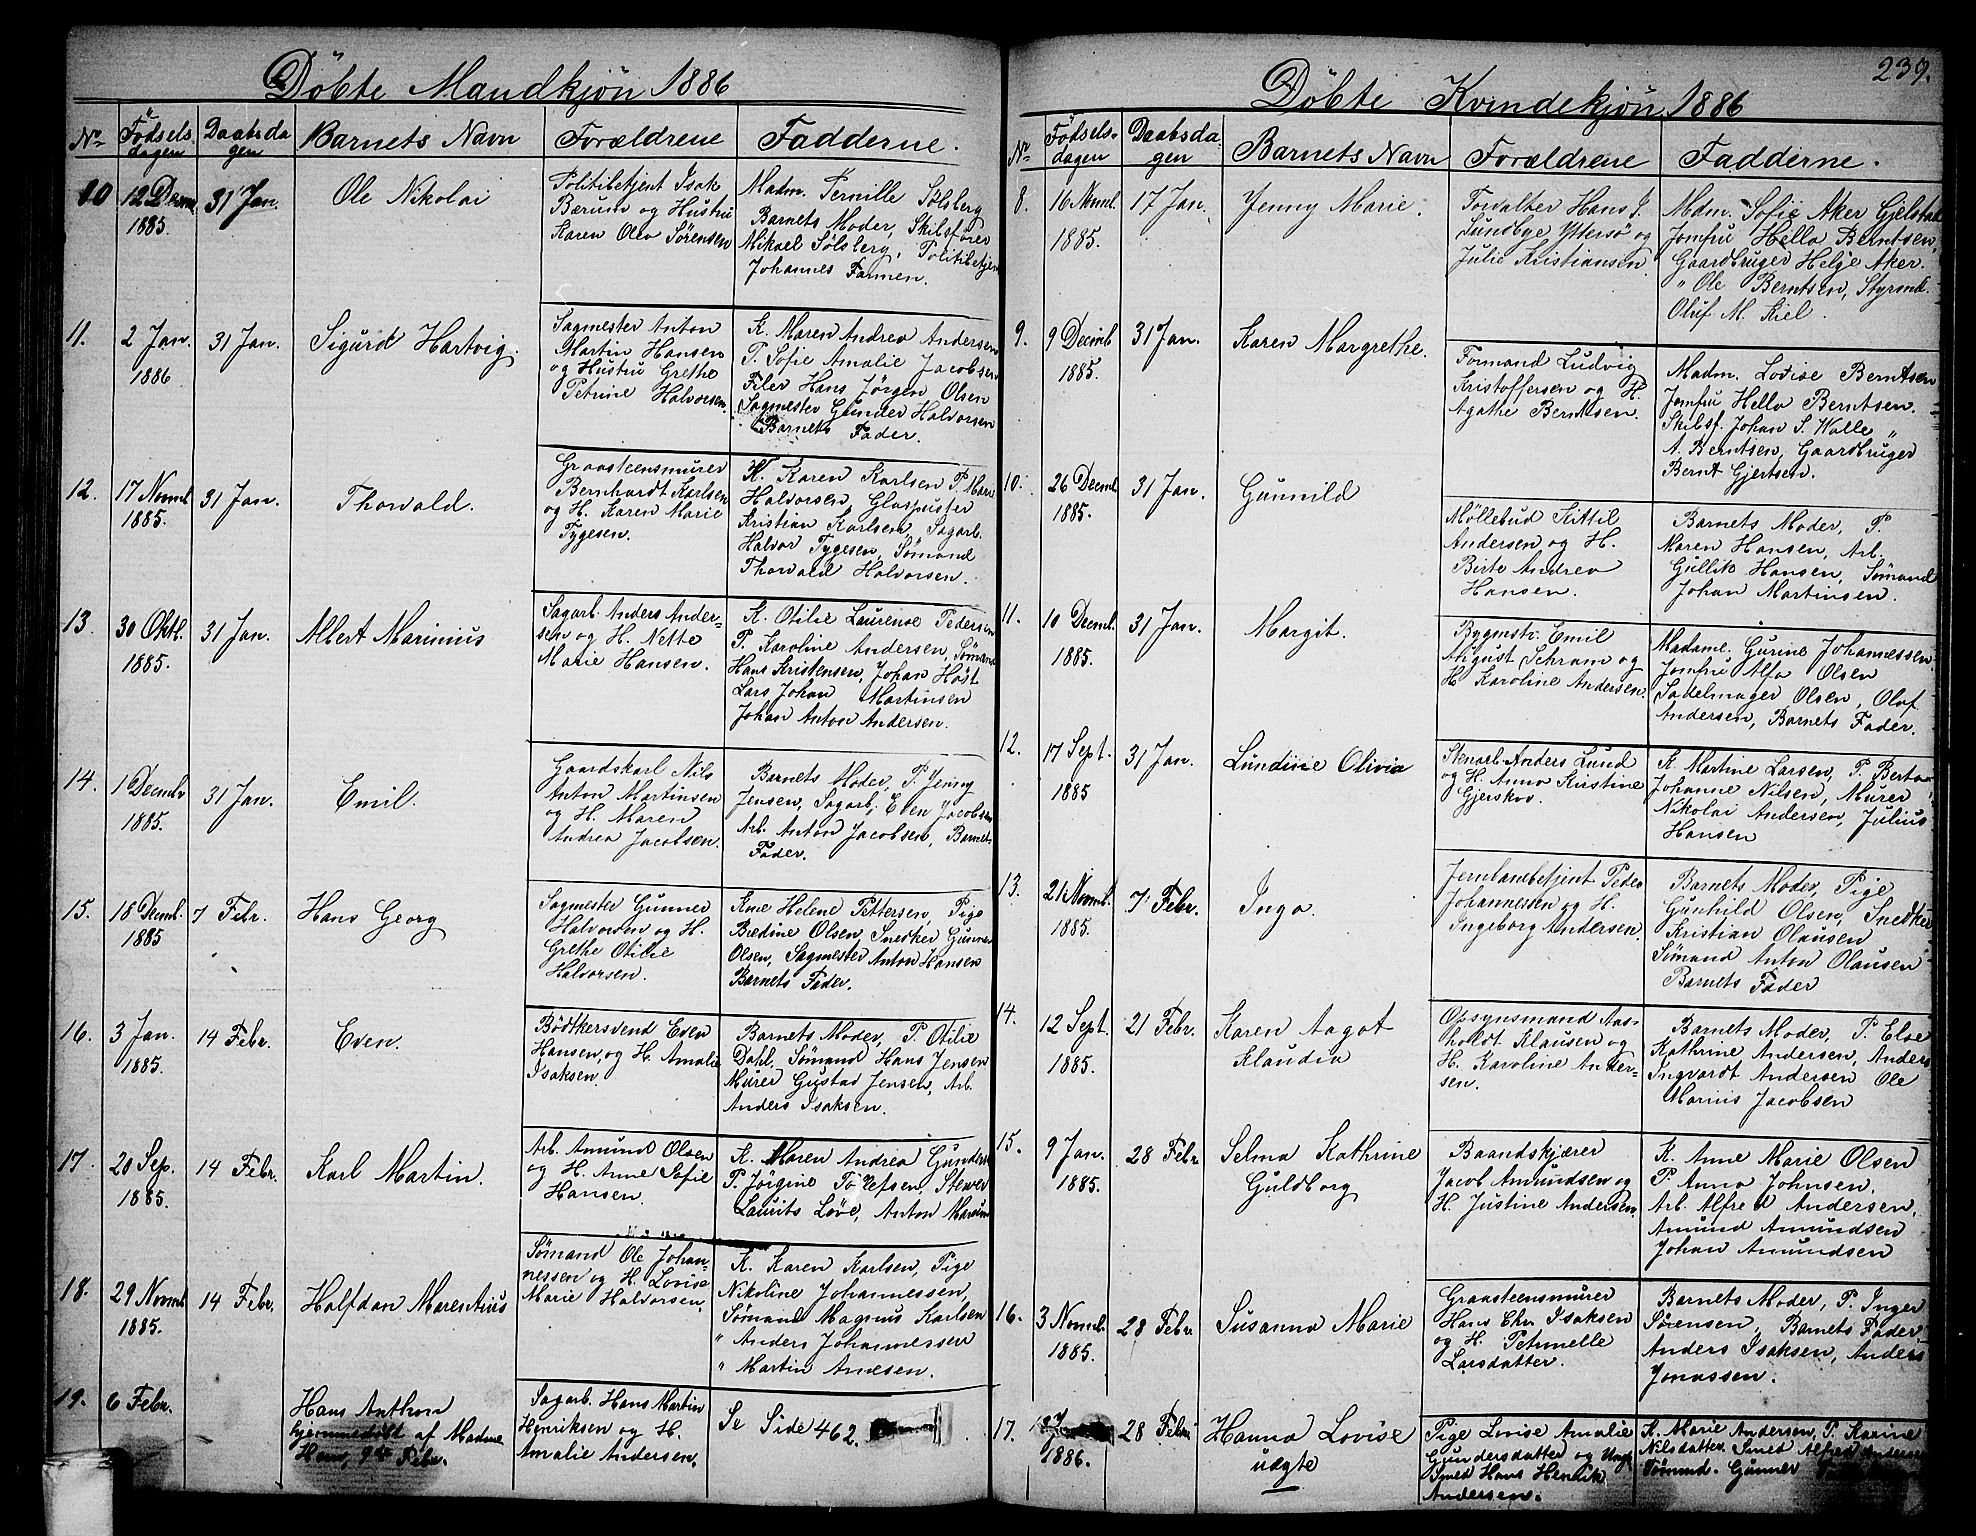 Döbte Mandkjön 1886
No Fødsels-dagen Daabsdagen Barnets Navn Forældrene Fadderne.
10 12 Decmb 1885. 31 Jan. Ole Nikolai
Politibetjent Isak
Bærum og Hustru
Karen Olea Sørensen
Madm. Pernille Sølsberg
Barnets Moder, Skibsfører
Mikael Sølsberg, Politibetjen
Johannes Farmen.
11. 2 Jan. 1886 31 Jan. Sigurd Hartvig.
Sagmester Anton
Martin Hansen
og Hustru Grethe
Petrine Halvorsen.
K. Maren Andrea Andersen
P. Sofie Amalie Jacobsen
Filer Hans Jörgen Olsen
Sagmester Gunder Halvorsen
Barnets Fader.
12. 17 Novmb. 1885. 31 Jan. Thorvald.
Graasteensmurer
Bernhardt Karlsen
og H. Karen Marie
Tygesen.
K. Karen Karlsen P. Maren
Halvorsen, Glaspuster
Kristian Karlsen, Sagarb.
Halvor Tygesen, Sømand
Thorvald Halvorsen.
13. 30 Oktb. 1885. 31 Jan. Albert Marinius
Sagarb. Anders Ander-
sen og H. Nette
Marie Hansen.
K. Otilie Laurense Pedersen
P. Karoline Andersen, Sømand
Hans Kristensen, Johan Høst
Lars Johan Martinsen
Johan Anton Andersen.
14. 1 Decmbr 1885. 31 Jan. Emil.
Gaardskarl Nils
Anton Martinsen
og H. Maren
Andrea Jacobsen.
Barnets Moder, P. Jenny
Jensen, Sagarb. Even Jacobsen
Arb. Anton Jacobsen, Barnets
Fader.
15. 18 Decmb. 1885 7 Febr. Hans Georg
Sagmester Gunner
Halvorsen og H.
Grethe Otilie
Halvorsen.
Kone Helene Pettersen, Pige
Bredine Olsen, Snedker Gunner
Olsen, Sagmester Anton Hansen
Barnets Fader.
16. 3 Jan. 1885. 14 Febr. Even.
Bödtkersvend Even
Hansen, og H. Amalie
Isaksen.
Barnets Moder, P. Otilie
Dahl, Sømand Hans Jensen
Murer Gustav Jensen, Arb.
Anders Isaksen.
17. 20 Sep. 1885. 14 Febr. Karl Martin.
Arb. Amund Olsen
og H. Anne Sofie
Hansen.
K. Maren Andrea Gunders
P. Jörgine Tollefsen,
Laurits Löve, Anton
18. 29 Novmb 1885. 14 Febr. Halfdan Marentius
Sömand Ole Johan-
nessen og H. Lovise
Marie Halvorsen.
K. Karen Karlsen, Pige
Nikoline Johannessen,
Sömand Magnus Karlsen
" Anders Johannessen
" Martin Arnesen.
19. 6 Febr. Hans Anthon
hjemmedöbt af Madme
Hem, 9de Febr.
Sagarb. Hans Martin
Henriksen og H.
Amalie Andersen.
Se Side 462.
239.
Döbte Kvindekjön 1886
No Fødsels-dagen Daabsdagen Barnets Navn Forældrene Fadderne.
8. 16 Novmb. 1885. 17 Jan. Jenny Marie.
Forvalter Hans J.
Lundbye Yttersø og
Julie Kristiansen.
Mdm. Sofie Aker Gjelstad
Jomfru Hella Berntsen,
Gaardbruger Helge Aker.
" Ole Berntsen, Styrmd.
Oluf M. Kiel.
9. 9 Decemb 1885. 31 Jan. Karen Margrethe.
Formand Ludvig
Kristoffersen og H.
Agathe Berntsen.
Madm. Lovise Berntsen
Jomfru Hella Berntsen.
Skibsf. Johan S. Walle "
A. Berntsen, Gaardbruger
Bernt Gjertsen.
10. 26 Decmb. 1885. 31 Jan. Gunnild
Möllebud Kittil
Andersen og H.
Birte Andrea
Hansen.
Barnets Moder, P.
Maren Hansen, Arb.
Gullik Hansen, Sömand
Johan Martinsen.
11. 10 Decmb. 1885. 31 Jan. Margit.
Bygmstr. Emil
August Schram og
H. Karoline Andersen.
Madame. Gurine Johannessen
Jomfru Alfa Olsen
Sadelmager Olsen, Oluf
Andersen, Barnets Fader.
12. 17 Sept. 1885 31 Jan. Lundine Olivia
Stenarb. Anders Lund
og H. Anna Kristine
Gjerskov.
K. Martine Larsen, P. Berta
Johanne Nilsen, Murer
Nikolai Andersen, Julius
Hansen
13. 21 Novmb. 1885. 7 Febr. Inga.
Jernbanebetjent Peder
Johannessen og H.
Ingeborg Andersen.
Barnets Moder, Pige
Gunhild Olsen, Snedker
Kristian Olausen
Sömand Anton Olausen
Barnets Fader
14. 12 Sept. 1885. 21 Febr. Karen Aagot
Klaudia
Opsynsmand Aas-
holdt Klausen og
H. Karoline Ander-
sen.
Barnets Moder, P. Elae
Kathrine Andersen, Anders
Ingvardt Andersen Ole
Marius Jacobsen
15. 9 Jan. 1885. 28 Febr Selma Kathrine
Guldborg
Baandskjærer
Jacob Amundsen og
H. Justine Andersen.
K. Anne Marie Olsen
P. Anna Johnsen.
Arb. Alfred Andersen.
Amund Amundsen
Johan Amundsen
16. 3 Novmb. 1885. 28 Febr Susanna Marie
Graasteensmurer
Hans Chr. Isaksen
og H. Petrnelle
Larsdatter.
Barnets Moder, P. Inger
Sörensen, Barnets Fader,
Anders Isaksen, Anders
Jonassen.
17. 1886. 28 Febr Hanna Lovise
uægte
Pige Lovise Amalie
Gundersdatter og Ungk.
Smed Hans Henrik
Andersen.
K. Marie Andersen, P. Karine
Nilsdatter Smed Alfred Anderse
Tömmd. Gunner